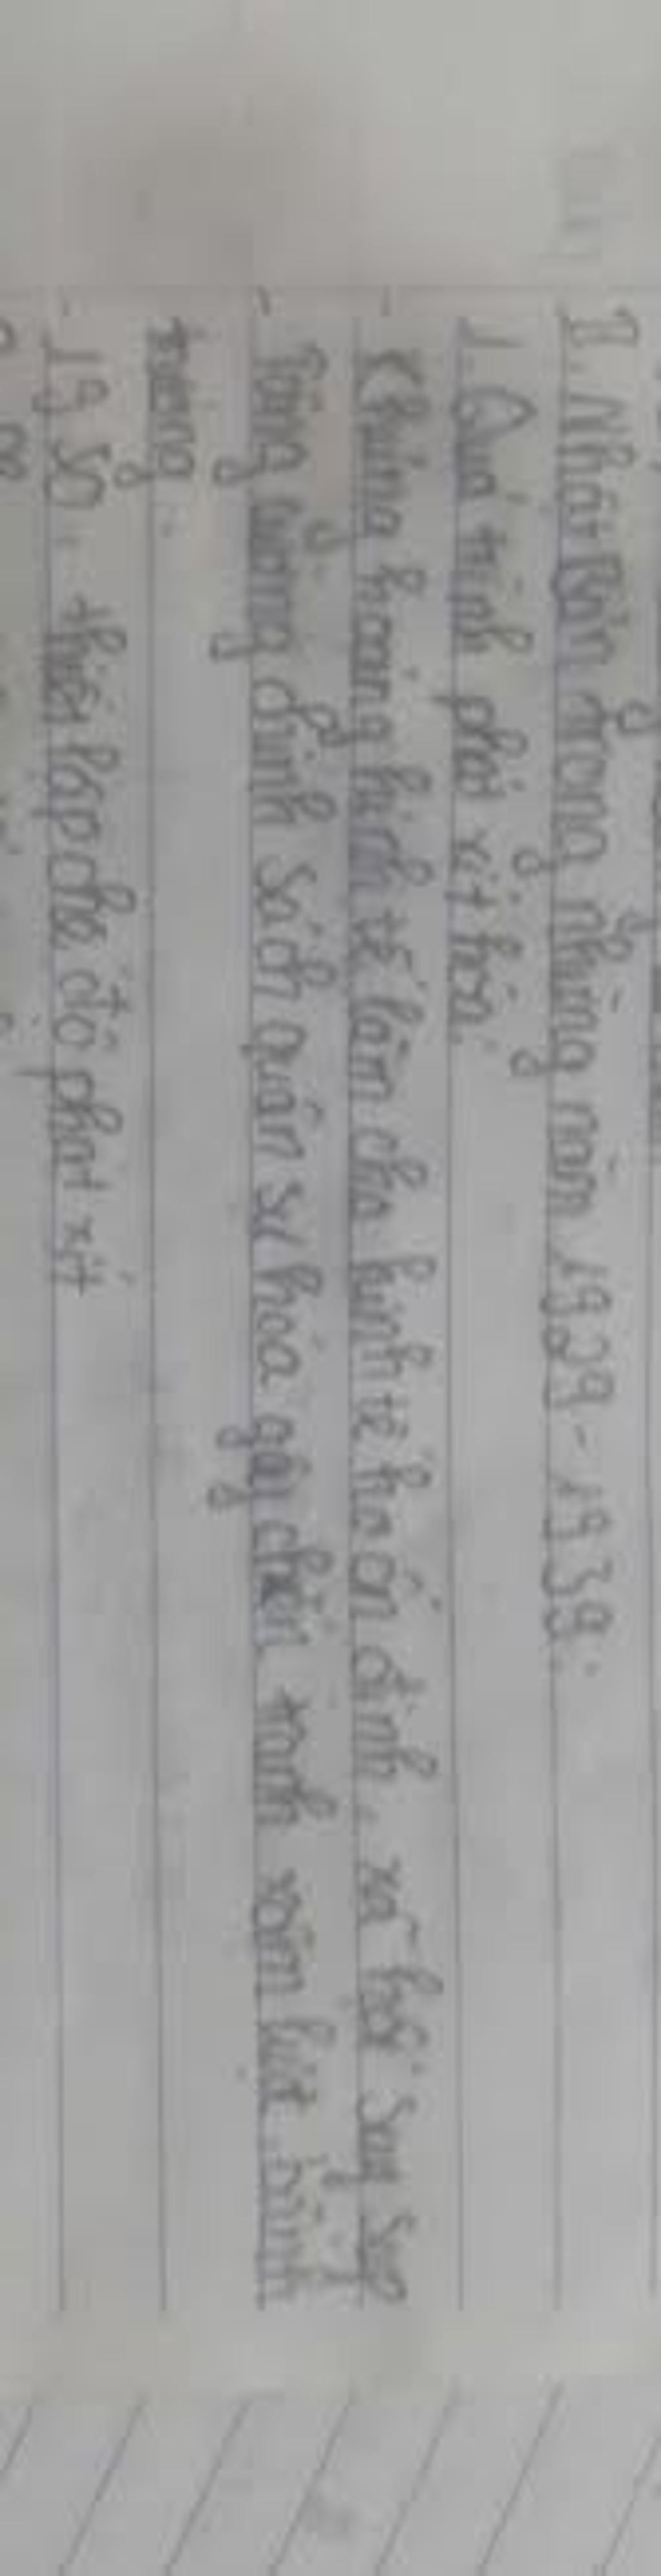 I. Nhật Bản trong những năm 1929-1939.
1. Quá trình phát xít hóa.
- Khủng hoảng kinh tế làm cho kinh tế ko ổn định, xã hội suy sụp
- Tăng cường chính sách quân sự hóa gây chiến tranh xâm lược bành
trướng.
- 19 30. thiết lập chế độ phát xít